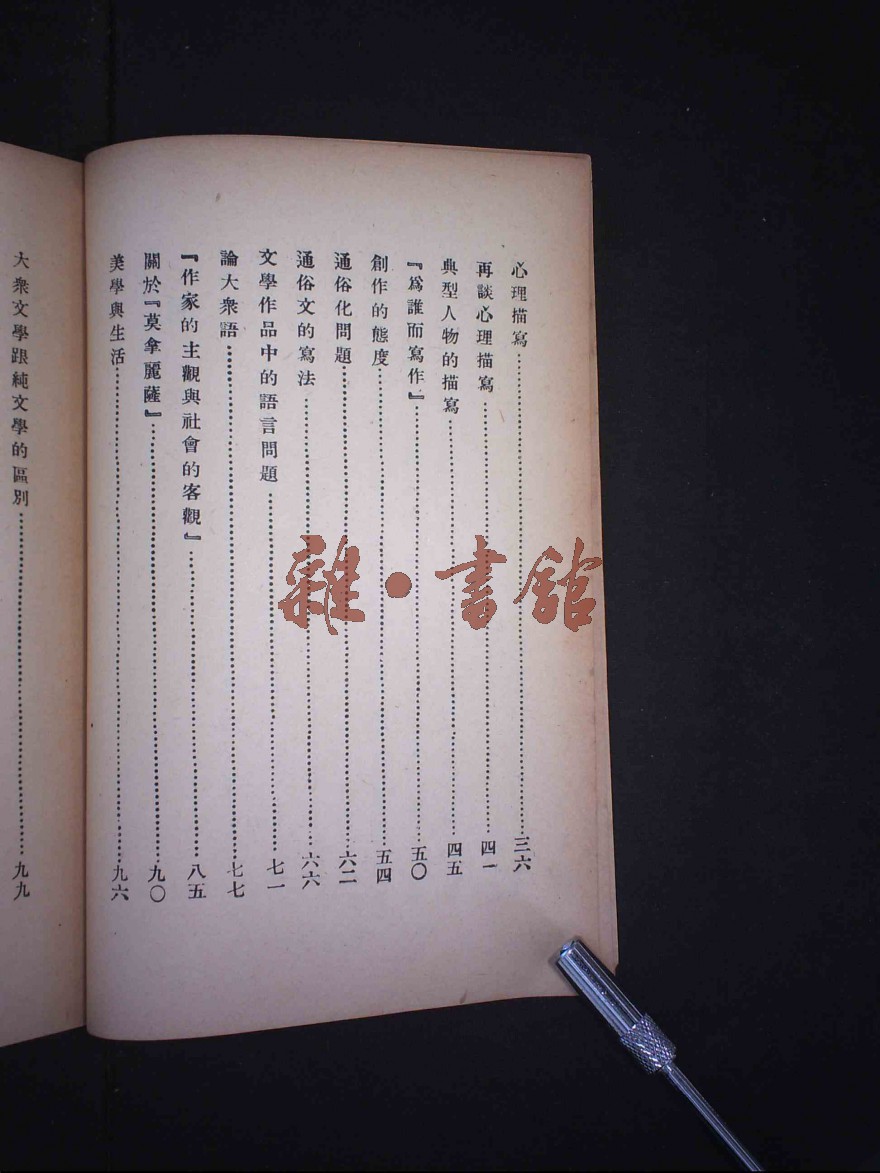 心理描寫…………三六
再談心理描寫…………四一
典型人物的描寫…………四五
『爲誰而寫作』…………五〇
創作的態度…………五四
通俗化問題…………六二
通俗文的寫法…………六六
文學作品中的語言問題…………七一
論大衆語…………七七
『作家的主觀與社會的客觀』…………八五
關於『莫拿麗薩』…………九〇
美學與生活…………九六
大衆文學跟純文學的區別…………九九
雜·書館